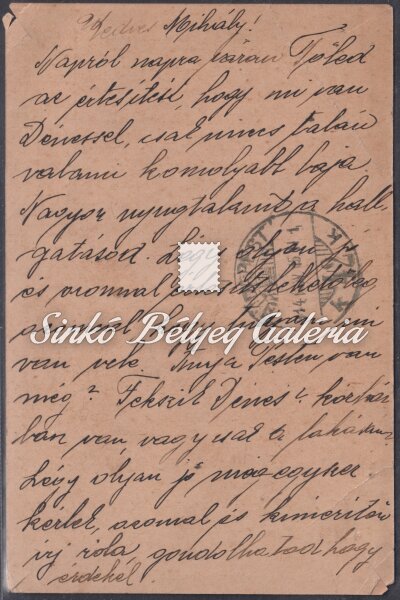 Kedves Mihály!
Napról napra várom Tőled
az értesítést, hogy mi van
Dénessel, csak nincs talán
valami komolyabb baja
Nagyon nyugtalanít a hall-
gatásod. Légy olyan jó
és azonnal
Sinkó Bélyeg Galéria
van vele. Anyja Pesten van
még? Fekszik Dénes? kórhá-
ban van vagy csak a lakásán.
Légy olyan jó mégegyszer
kérlek, azonnal és kimerítően
írj róla, gondolhatod hogy
érdekel.